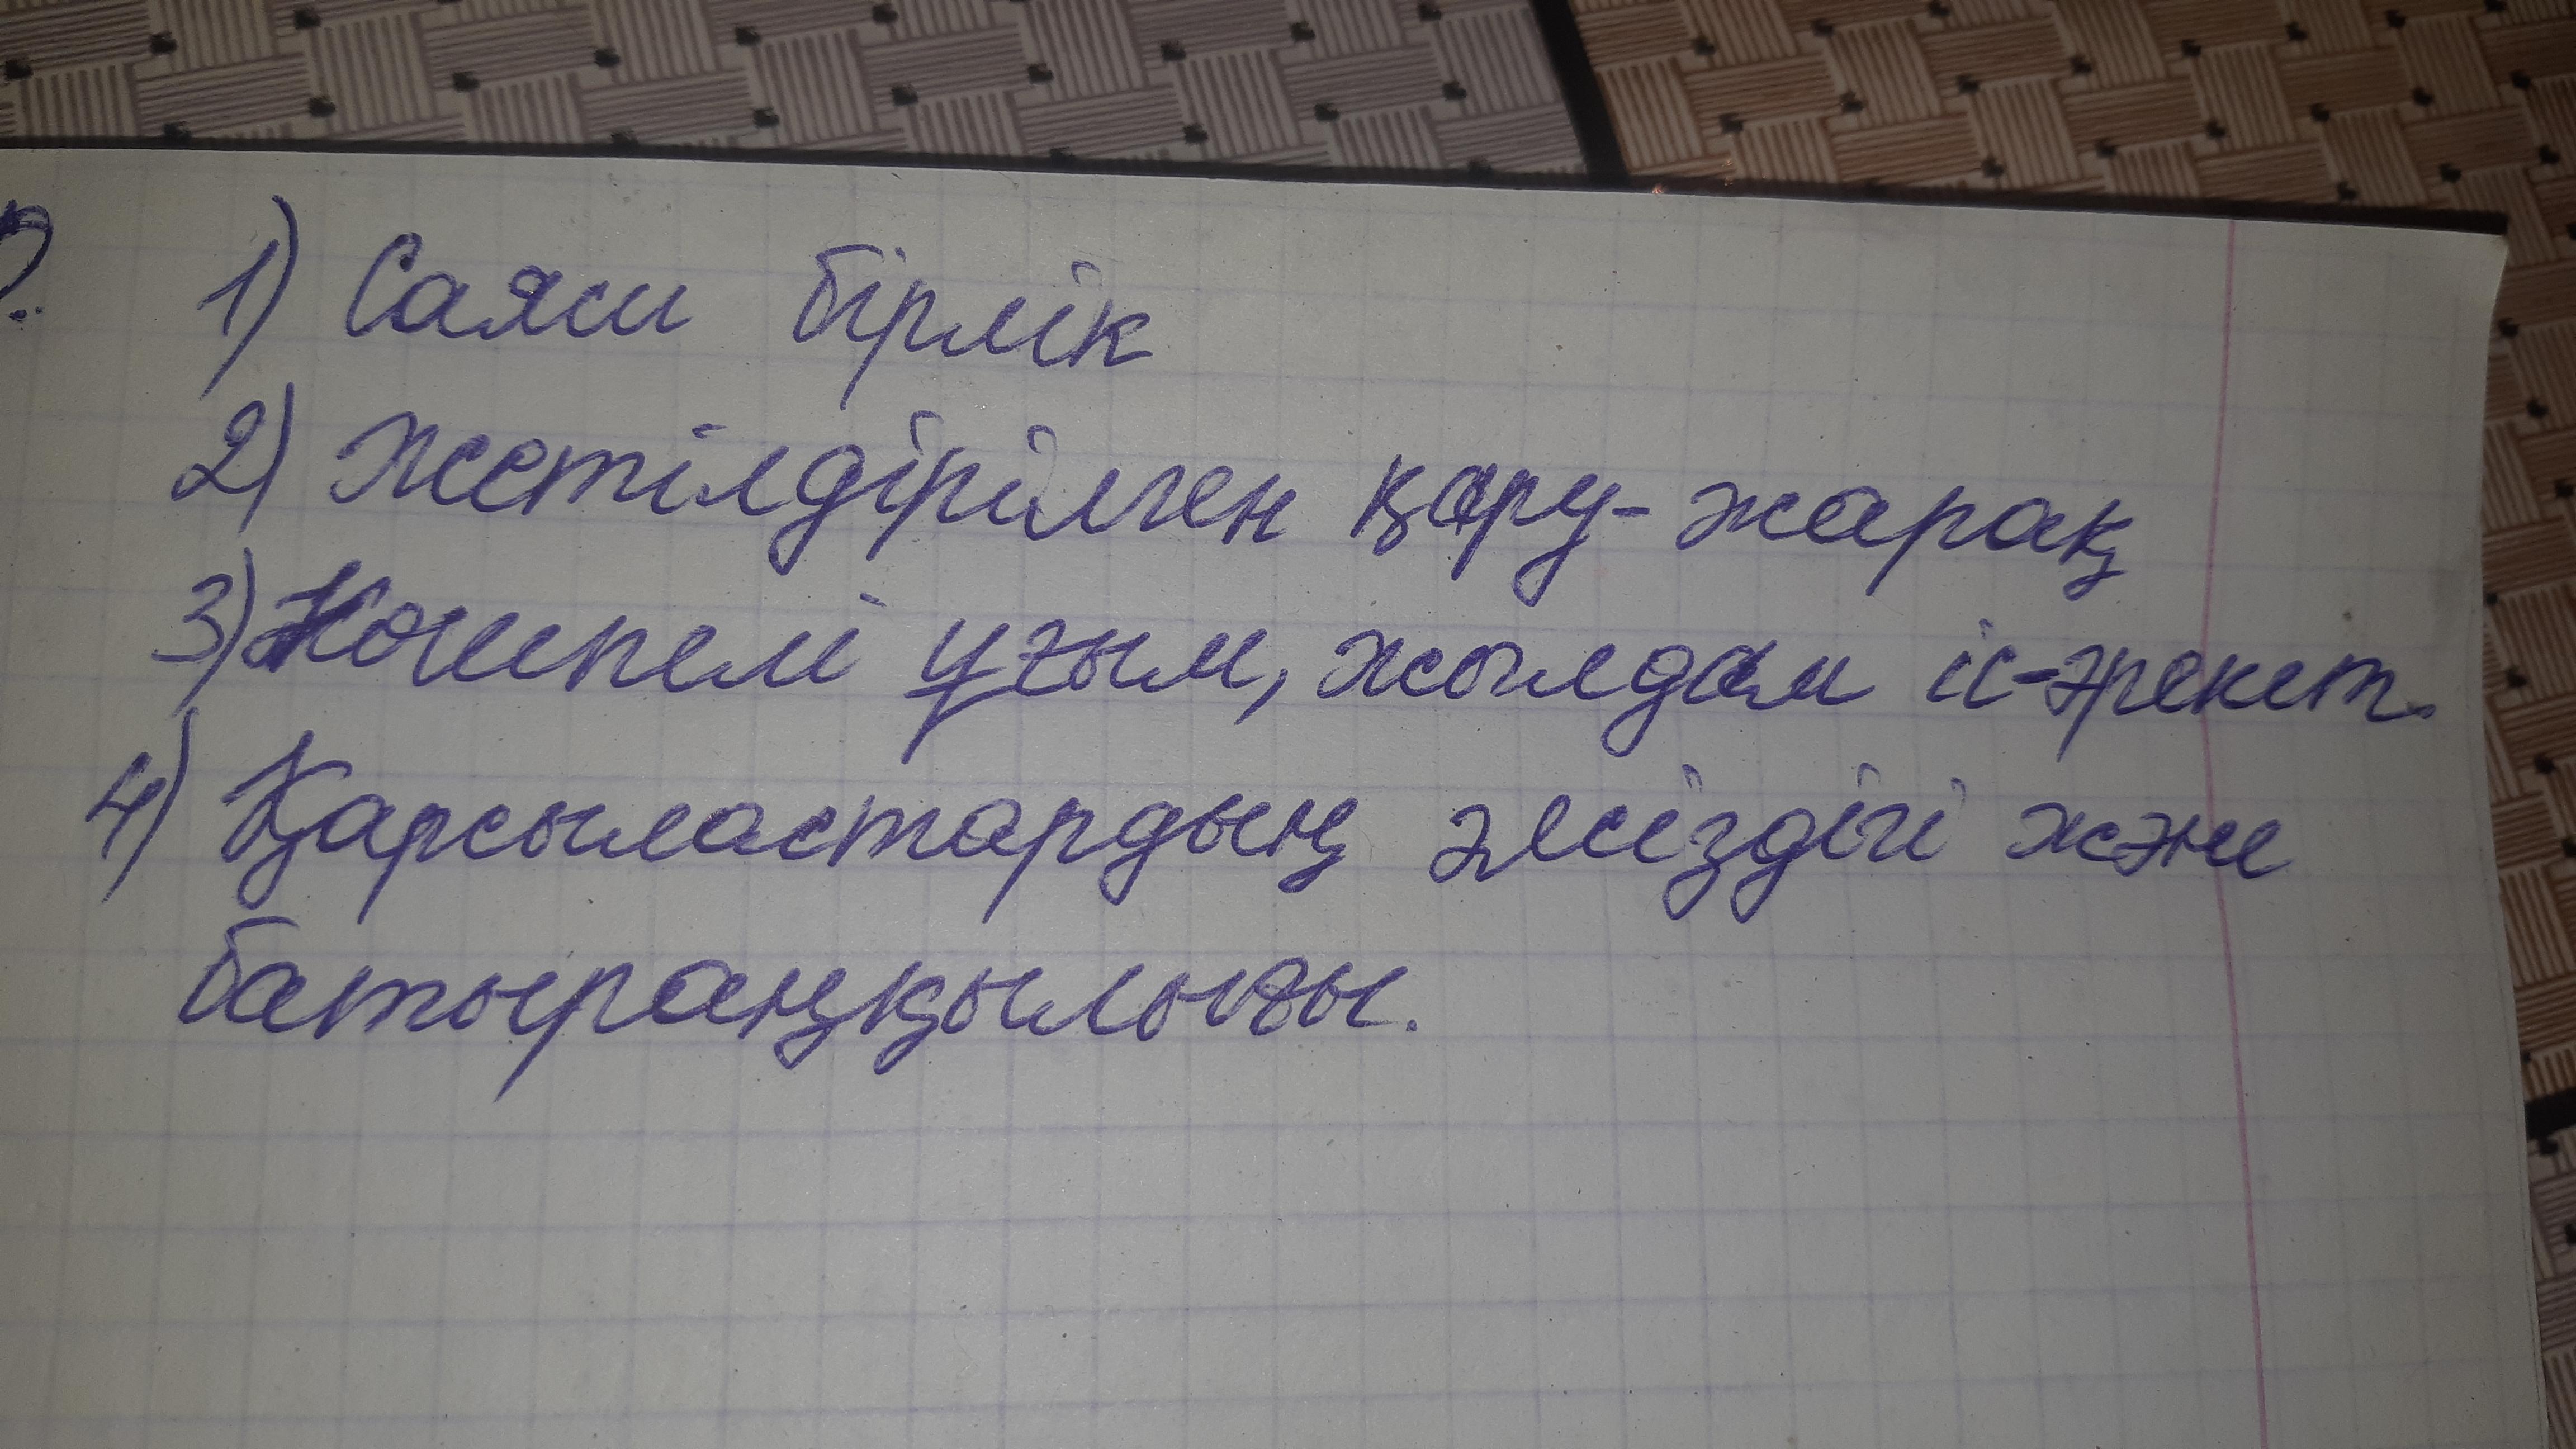 1) Саяси бірлік
2) Жетілдірілген қару-жарақ
3) Көшпелі ұғым, жылдам іс-әрекет.
4) Қарсыластардың әлсіздігі және
батыраңқылығы.